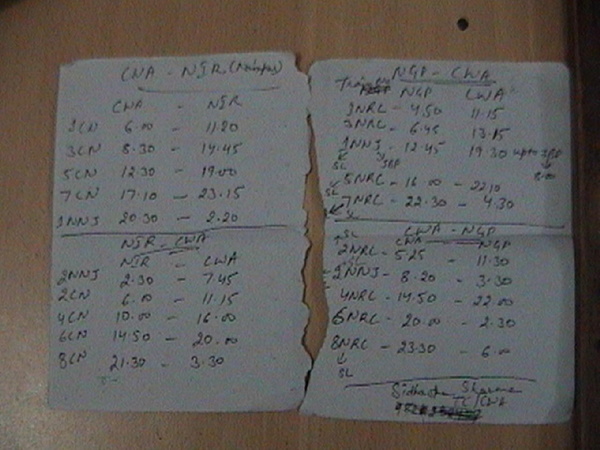 CWA - NIR (Nainpur)
CWA - NIR
1CN 6.00 - 11.20
3CN 8.30 - 14.45
5CN 12.30 - 19.00
7CN 17.10 - 23.15
1NNJ 20.30 - 2.20
NIR - CWA
NIR - CWA
2NNJ 2.30 - 7.45
2CN 6.00 - 11.15
4CN 10.00 - 16.00
6CN 14.50 - 20.00
8CN 21.30 - 3.30
NGP - CWA
Train No NGP CWA
1NRC - 4.50 11.15
3NRC - 6.45 13.15
1NNJ - 12.45 19.30 upto JBP
SL JBP 8.00
5NRC - 16.00 - 22.10
SL
7NRC - 22.30 - 4.30
SL
CWA - NGP
SL CWA NGP
2NRC - 5.25 - 11.30
SL
2NNJ - 8.20 - 3.30
4NRC - 14.50 - 22.00
6NRC - 20.00 - 2.30
8NRC - 23.30 - 6.00
SL
Sharma
TC/CWA